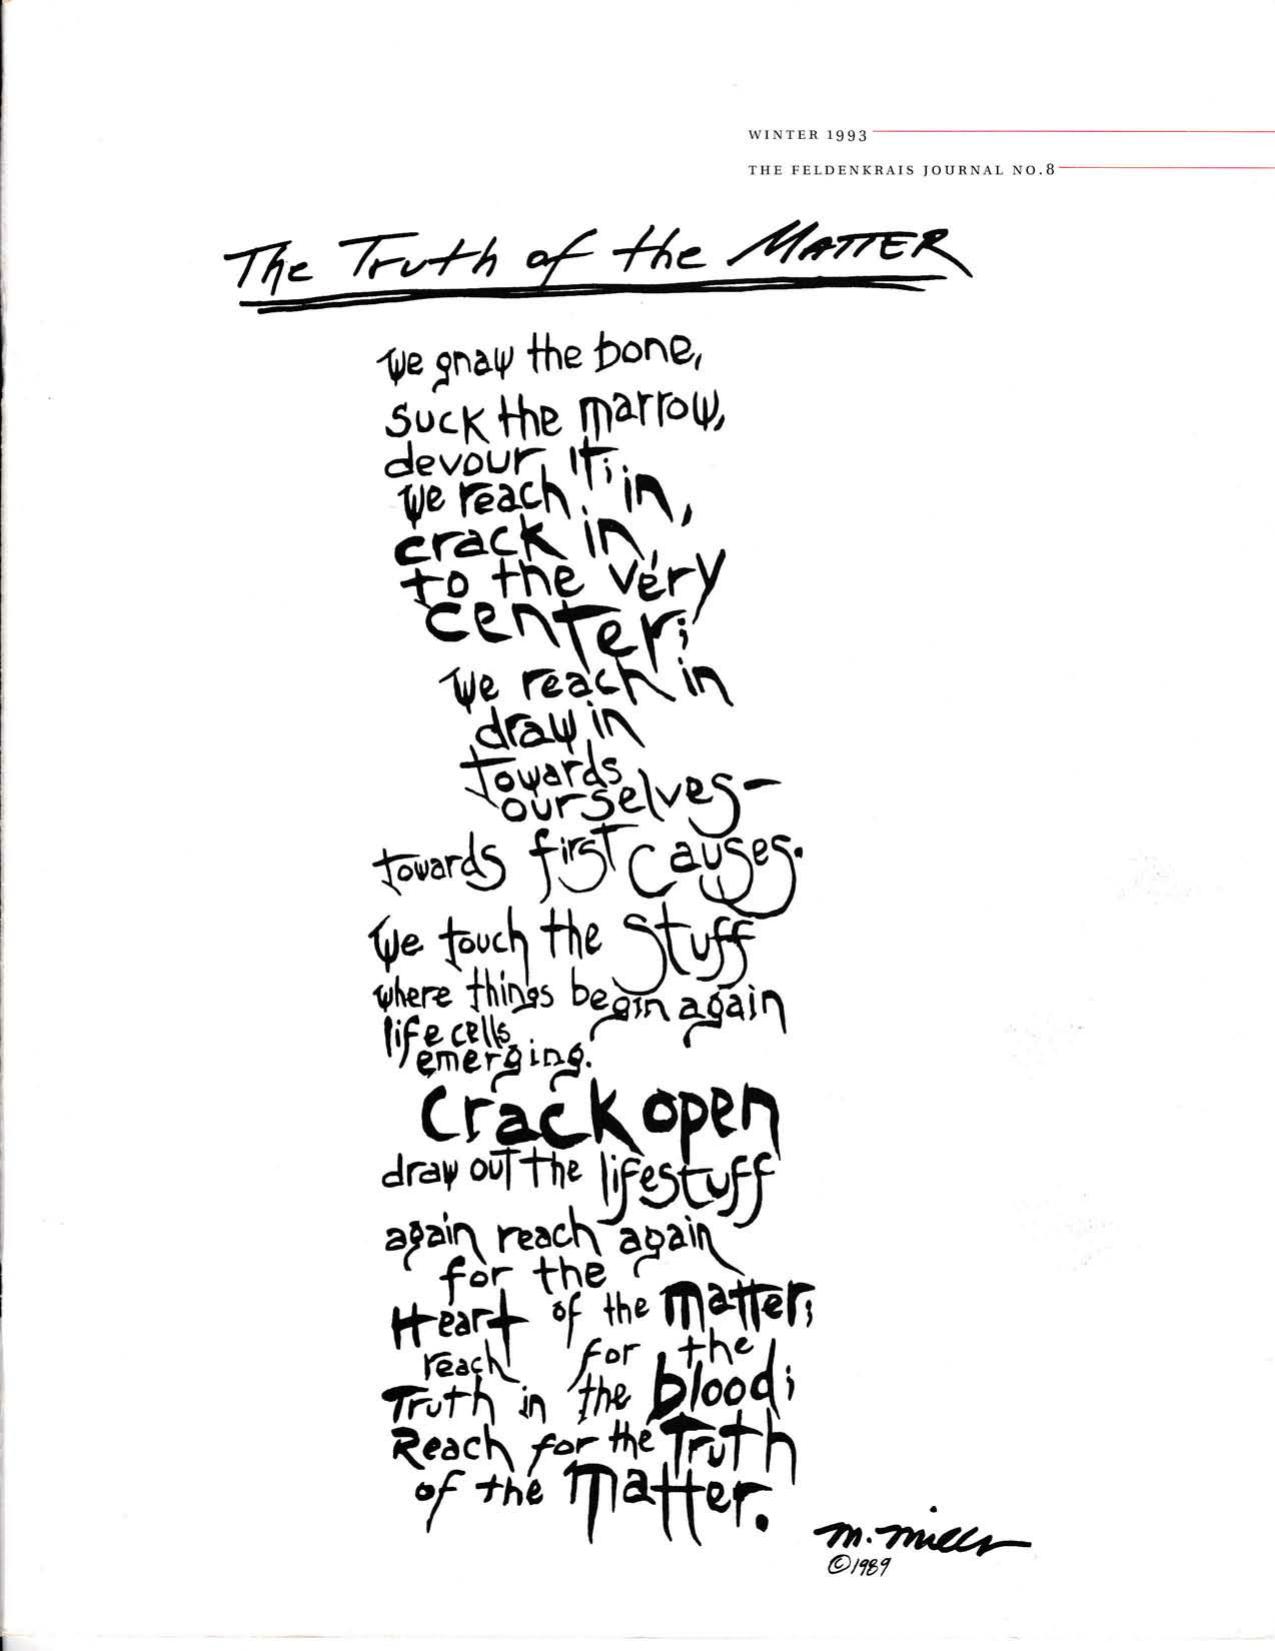 WINTER 1993
THE FELDENKRAIS JOURNAL NO.8
The Truth of the MATTER
We gnaw the bone,
suck the marrow,
devour it;
we reach in,
crack in,
to the very
center;
we reach in
draw in
towards
ourselves—
towards first causes.
We touch the stuff
where things begin again
life cells
emerging.
Crack open
draw out the lifestuff
again reach again
for the
Heart of the matter;
reach for the
Truth in the blood;
Reach for the Truth
of the Matter.
M. Mills
©1989